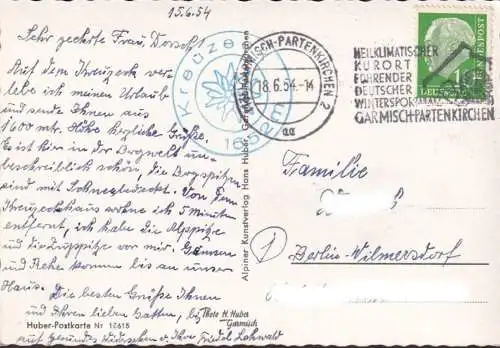 15.6.54
Sehr geehrte Frau Dorsch!
Auf dem Kreuzeck ver-
lebe ich meinen Urlaub
und sende Ihnen aus
1600 mtr. Höhe herzliche Grüße.
Es ist hier in der Bergwelt un-
beschreiblich schön, die Bergspitzen
sind mit Schnee bedeckt. Von dem
Kreuzeckhaus wohne ich 5 Minuten
entfernt, ich habe die Alpspitze
und die Zugspitze vor mir. Gemsen
und Rehe kommen bis an unser
Haus.
Die besten Grüße Ihnen
und Ihrem lieben Gatten,
auf gesundes Wiedersehen Ihre Friedel
Photo H. Huber
Garmisch
Huber-Postkarte Nr 12615
Alpiner Kunstverlag Hans Huber, Garmisch-Partenkirchen
Kreuzeck
165
GARMISCH-PARTENKIRCHEN 2
18.6.54.-14
aa
HEILKLIMATISCHER
KURORT
FÜHRENDER
DEUTSCHER
WINTERSPORTPLATZ
GARMISCH-PARTENKIRCHEN
DEUTSCHE BUNDESPOST
10
Familie
Berlin-Wilmersdorf